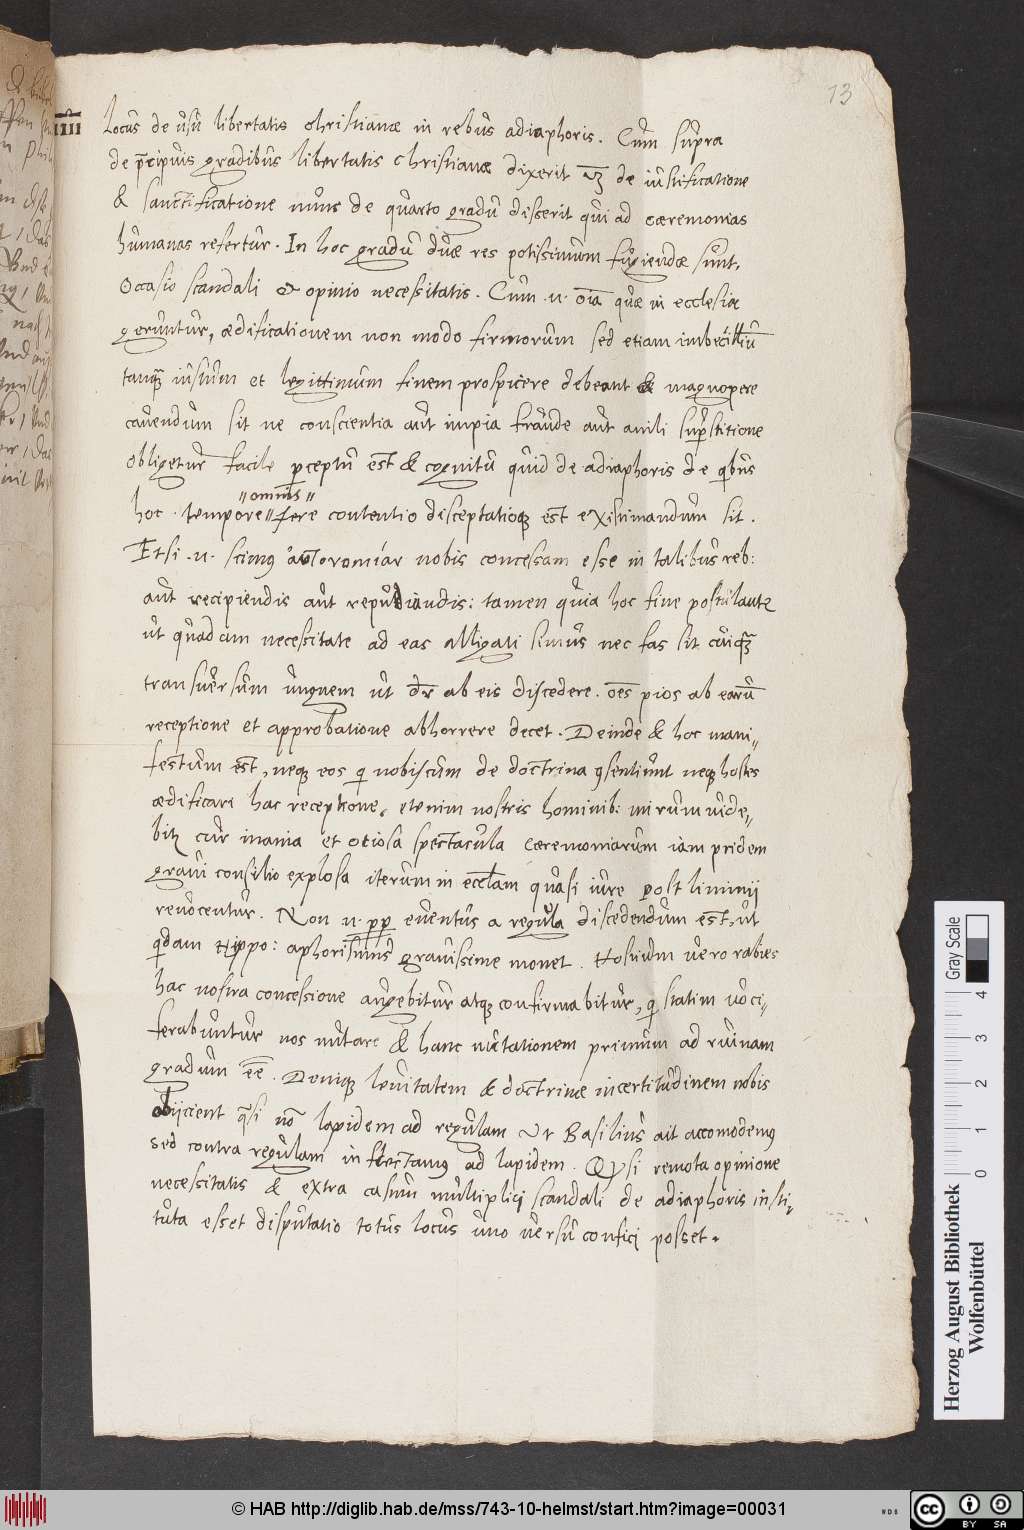 13
IIII
Locus de usu libertatis christianae in rebus adiaphoris. Cum supra
de p̄cipuis gradibus libertatis christianae dixerit de iustificatione
& sanctificatione nunc de quarto gradu disserit qui ad caeremonias
humanas refertur. In hoc gradu duae res potissimum fugiendae sunt,
Occasio scandali & opinio necessitatis. Cum .n. oīa quae in ecclesia
geruntur, aedificationem non modo firmorum sed etiam imbecilliū
tanq̄ iustum et legittimum finem prospicere debeant & magnopere
cavendum sit ne conscientia aut impia fraude aut anili sup̄stitione
obligetur facile perceptu est & cognitu quid de adiaphoris de q̄bus
"omnis"
hoc . tempore "fere contentio disceptatioq; est existimandum sit.
Etsi .n. scimus αὐτονομίαν nobis concessam esse in talibus reb:
aut recipiendis aut repudiandis: tamen quia hoc fine postulantur
ut quadam necessitate ad eas alligati simus nec fas sit cuiq̄
transversum unguem ut dr̄ ab eis discedere. oēs pios ab earū
receptione et approbatione abhorrere decet. Deinde & hoc mani,,
festum est, neque eos qi nobiscum de doctrina 9sentiunt neq; hostes
aedificari hac receptione, etenim nostris hominib: mirum vide,,
bitr cur inania et otiosa spectacula caeremoniarum iam pridem
gravi consilio explosa iterum in eccl̄am quasi iure post liminij
revocentur. Non .n. pp eventus a regula discedendum est, ut
qdam Hippo: aphorismus gravissime monet. Hostium vero rabies
hac nostra concessione augebitur atq; confirmabitur, qi statim voci,,
ferabuntur nos mutare & hanc mutationem primum ad ruinam
gradum ēē. Deniq; levitatem & doctrinae incertitudinem nobis
obijcient q̄si nō lapidem ad regulam ut Basilius ait accomodemus
sed contra regulam inflectamus ad lapidem. Qu si remota opinione
necessitatis & extra casum multiplici scandali de adiaphoris insti,,
tuta esset disputatio totus locus uno versu confici posset.
Gray Scale
0 1 2 3 4
Herzog August Bibliothek
Wolfenbüttel
© HAB http://diglib.hab.de/mss/743-10-helmst/start.htm?image=00031
WDB
CC BY SA